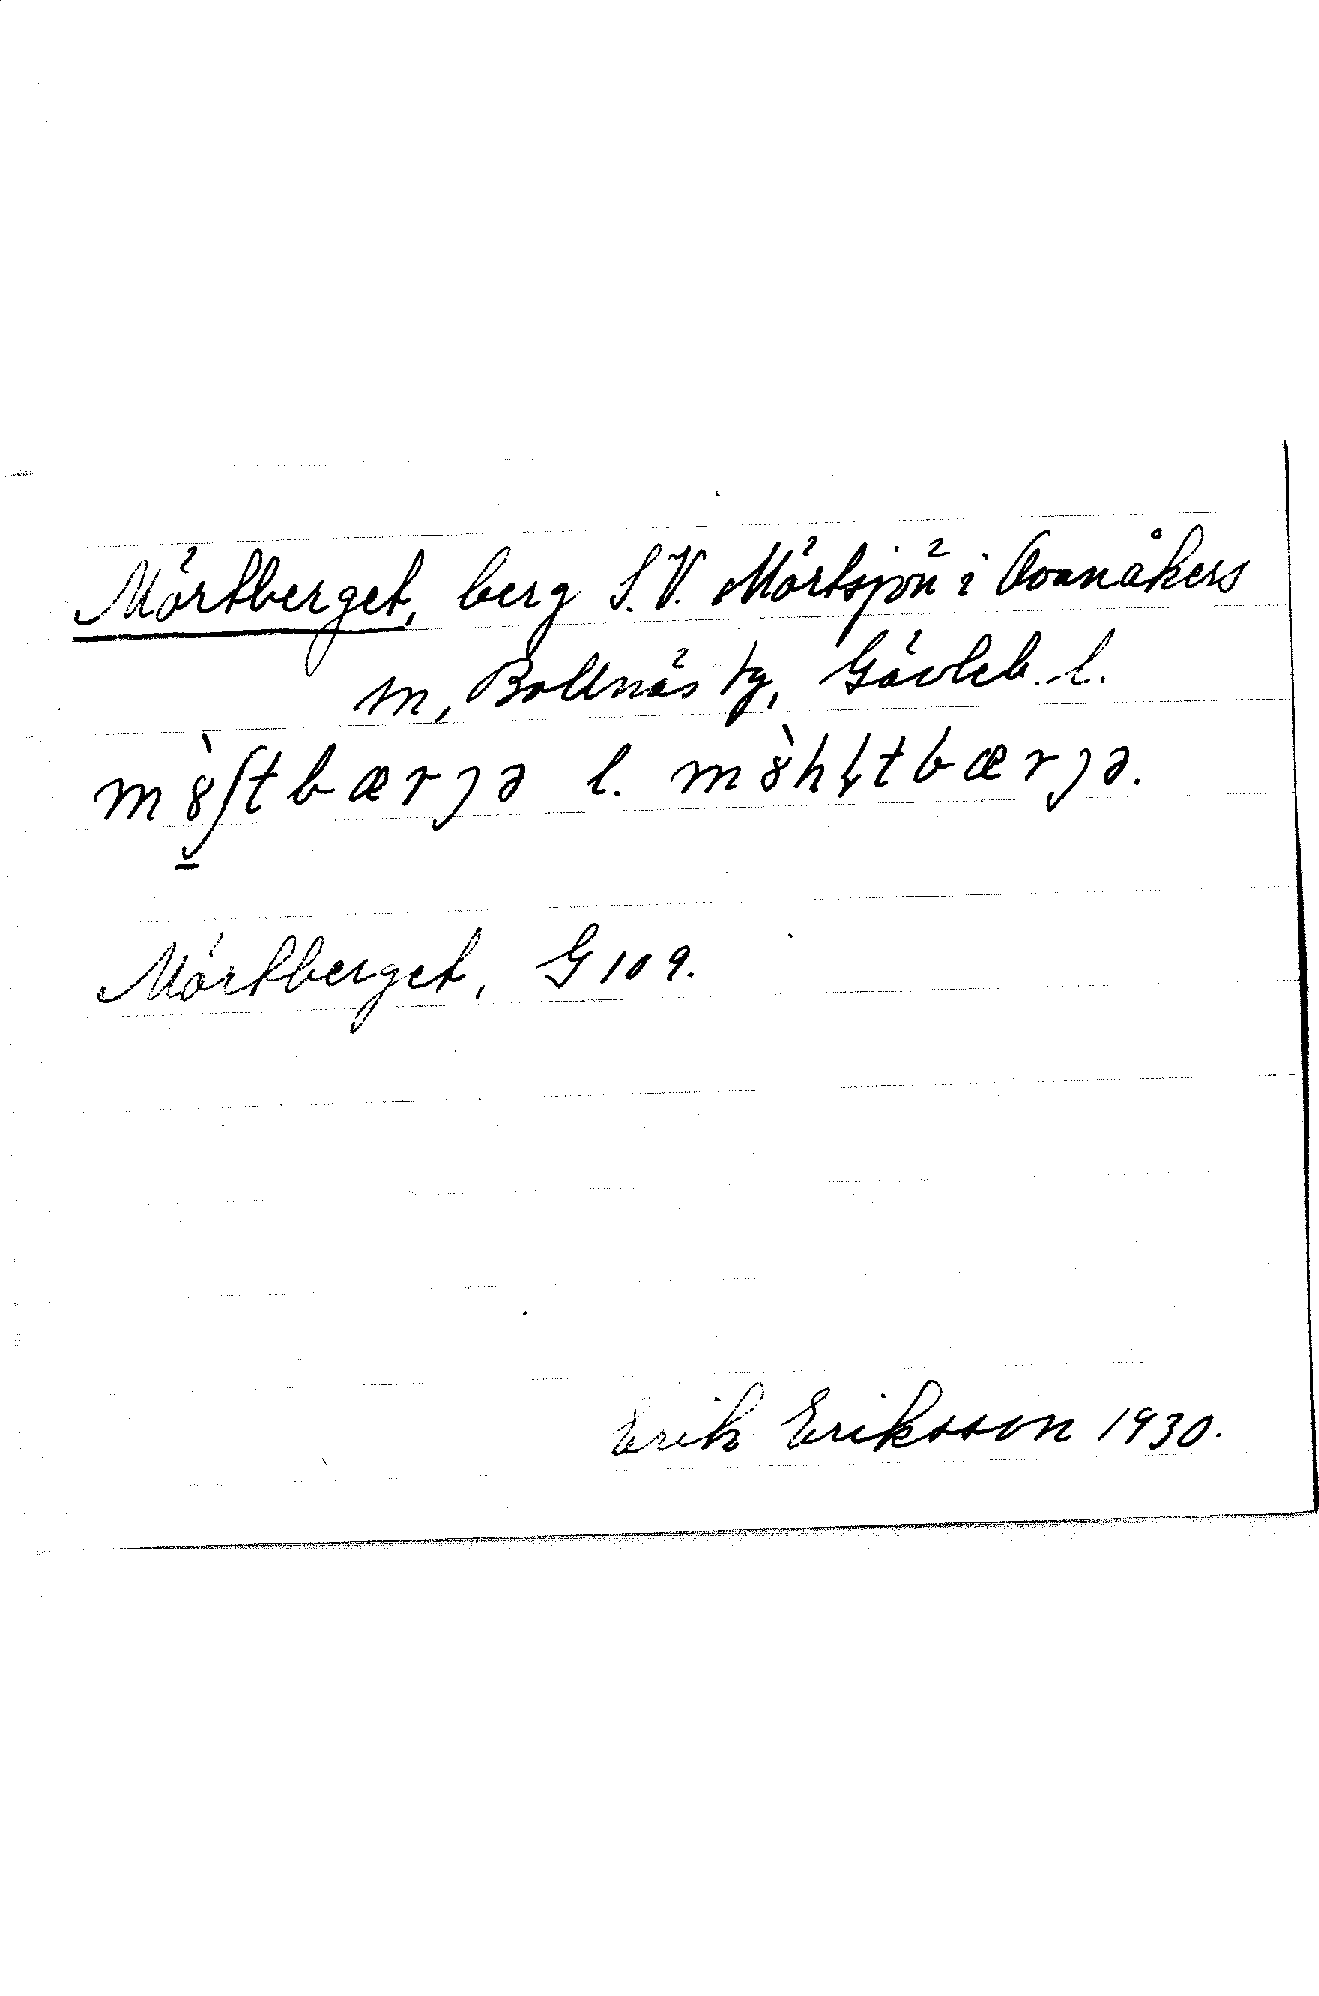 Mörtberget, berg S.V. Mörtsjön i Ovanåkers
sn, Bollnäs tg, Gävleb. l.
m8̀ʃtbærȷə l. m8̀hɬtbærȷə.
Mörtberget, G 109.
Erik Eriksson 1930.